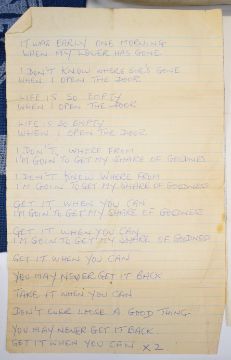 IT WAS EARLY ONE MORNING
WHEN MY LOVER HAS GONE
I DON'T KNOW WHERE SHE'S GONE
WHEN I OPEN THE DOOR
LIFE IS SO EMPTY
WHEN I OPEN THE DOOR
LIFE IS SO EMPTY
WHEN I OPEN THE DOOR
I DON'T, WHERE FROM
I'M GOIN TO GET MY SHARE OF GOODNESS
I DON'T KNOW WHERE FROM
I'M GOIN TO GET MY SHARE OF GOODNESS
GET IT WHEN YOU CAN
I'M GOIN TO GET MY SHARE OF GOODNESS
GET IT WHEN YOU CAN
I'M GOIN TO GET MY SHARE OF GOODNESS
GET IT WHEN YOU CAN
YOU MAY NEVER GET IT BACK
TAKE IT WHEN YOU CAN
DON'T EVER LOOSE A GOOD THING.
YOU MAY NEVER GET IT BACK
GET IT WHEN YOU CAN X2